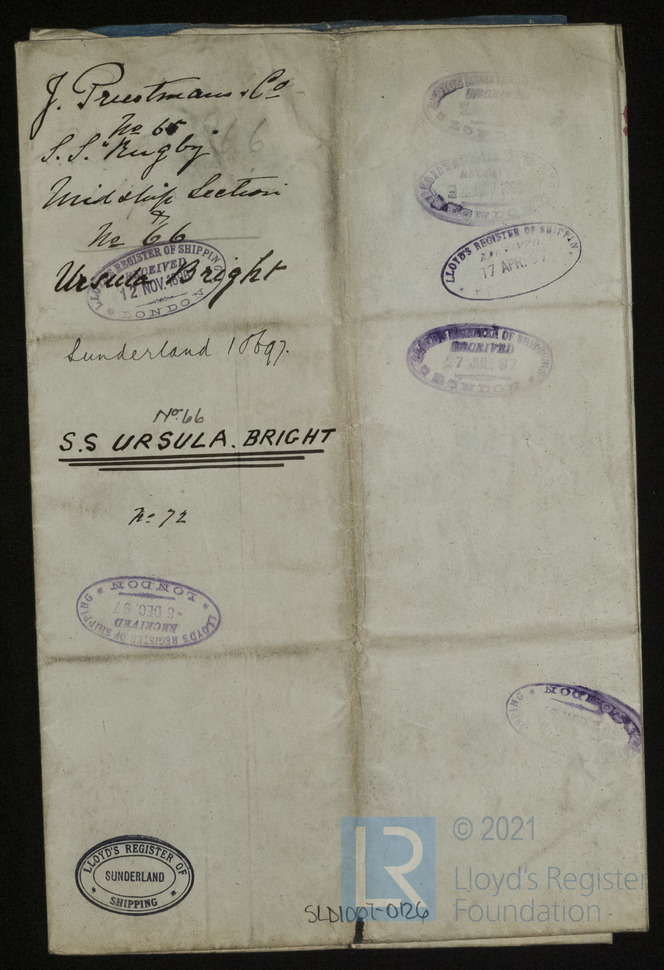 J. Priestman & Co
No 65
S.S. "Rugby"
Midship Section
&
No 66
Ursula Bright
LLOYD'S REGISTER OF SHIPPING
RECEIVED
12 NOV. 189
LONDON
Sunderland 1897.
No 66
S.S URSULA. BRIGHT
No 72
LLOYD'S REGISTER OF SHIPPING
RECEIVED
-6 DEC. 97
LONDON
LLOYD'S REGISTER OF
SUNDERLAND
SHIPPING
66
RECEIVED
LONDON
LLOYD'S REGISTER OF SHIPPIN
RECEIVED
17 APR. 97
OF SHIPPING
RECEIVED
27 JUL 97
LONDON
SHIPPING
LONDON
LR
© 2021
Lloyd's Register
Foundation
SLD1007-0126